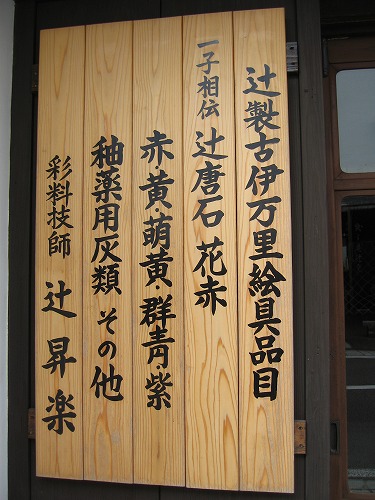 辻製古伊万里絵具品目
一子相伝 辻唐石 花赤
赤・黄・萌黄・群青・紫
釉薬用灰類 その他
彩料技師 辻 昇楽